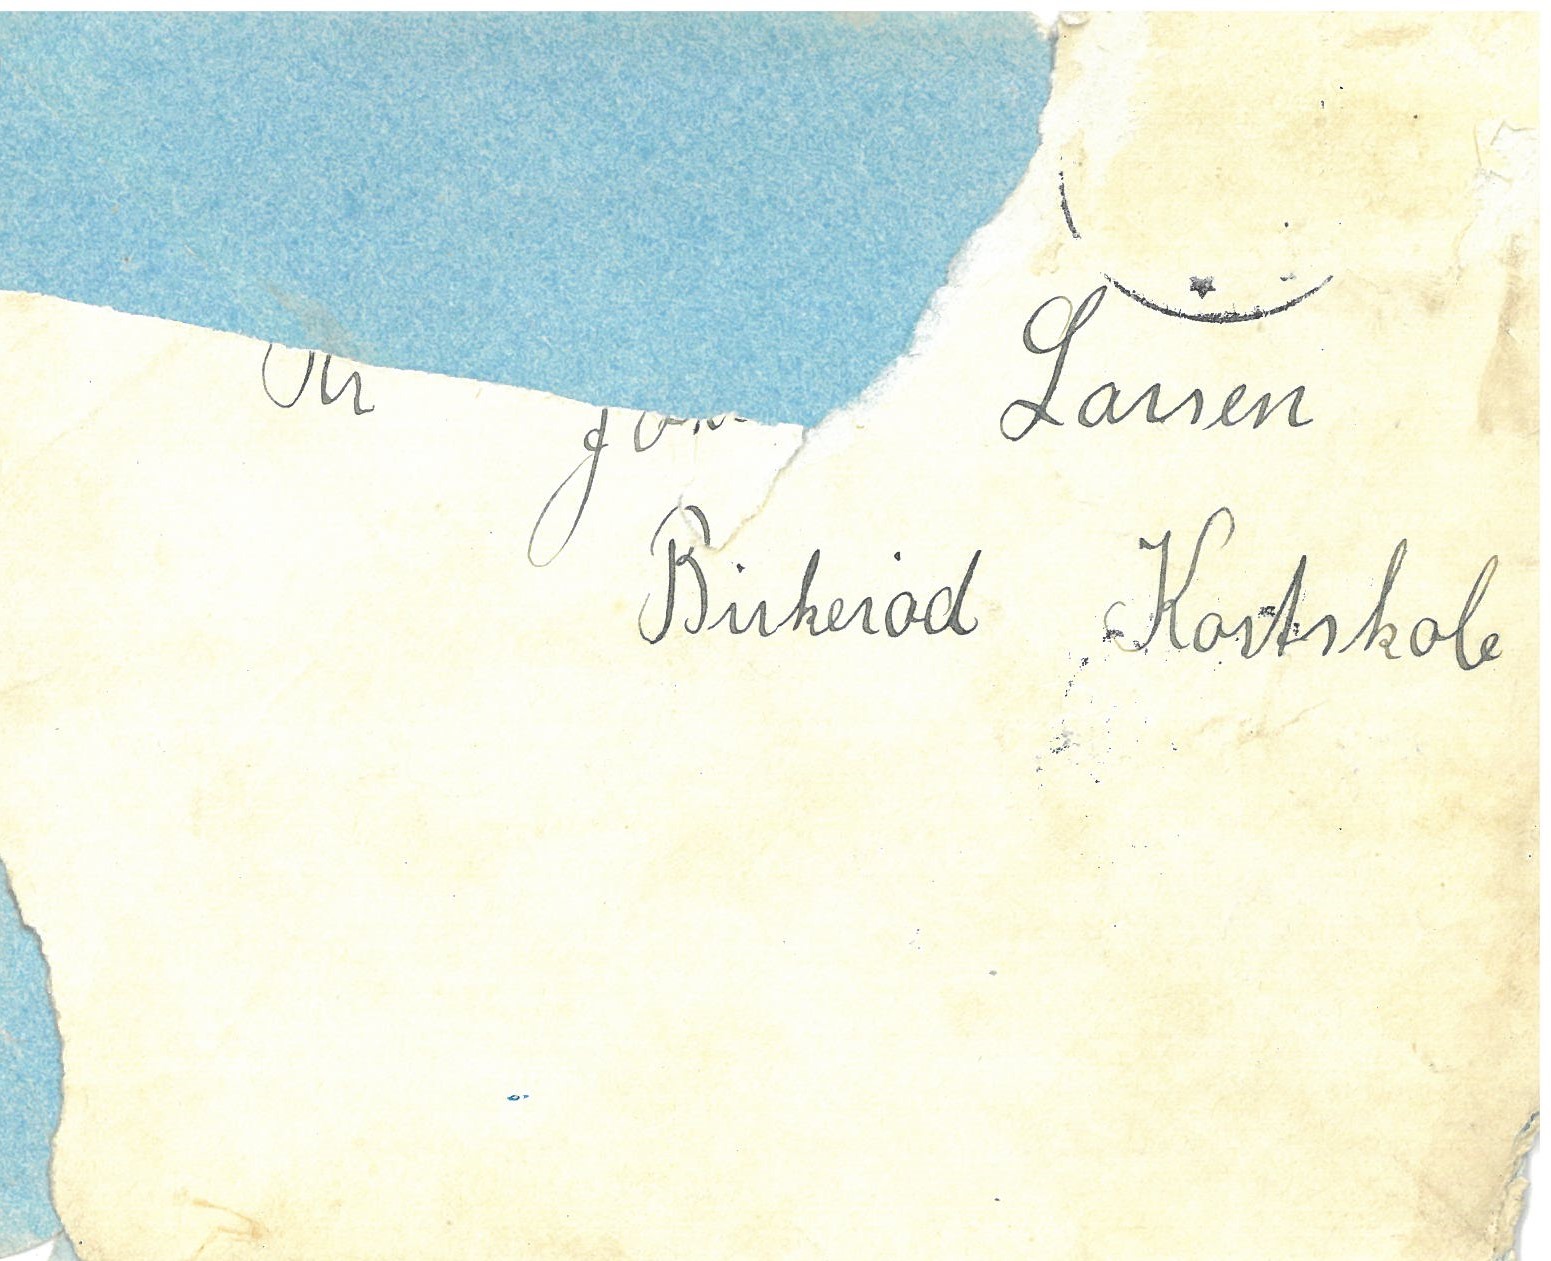 Hr Larsen
Birkerød Kostskole